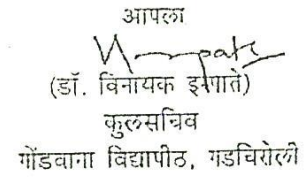 आपला
(डॉ. विनायक इरपाते)
कुलसचिव
गोंडवाना विद्यापीठ, गडचिरोली